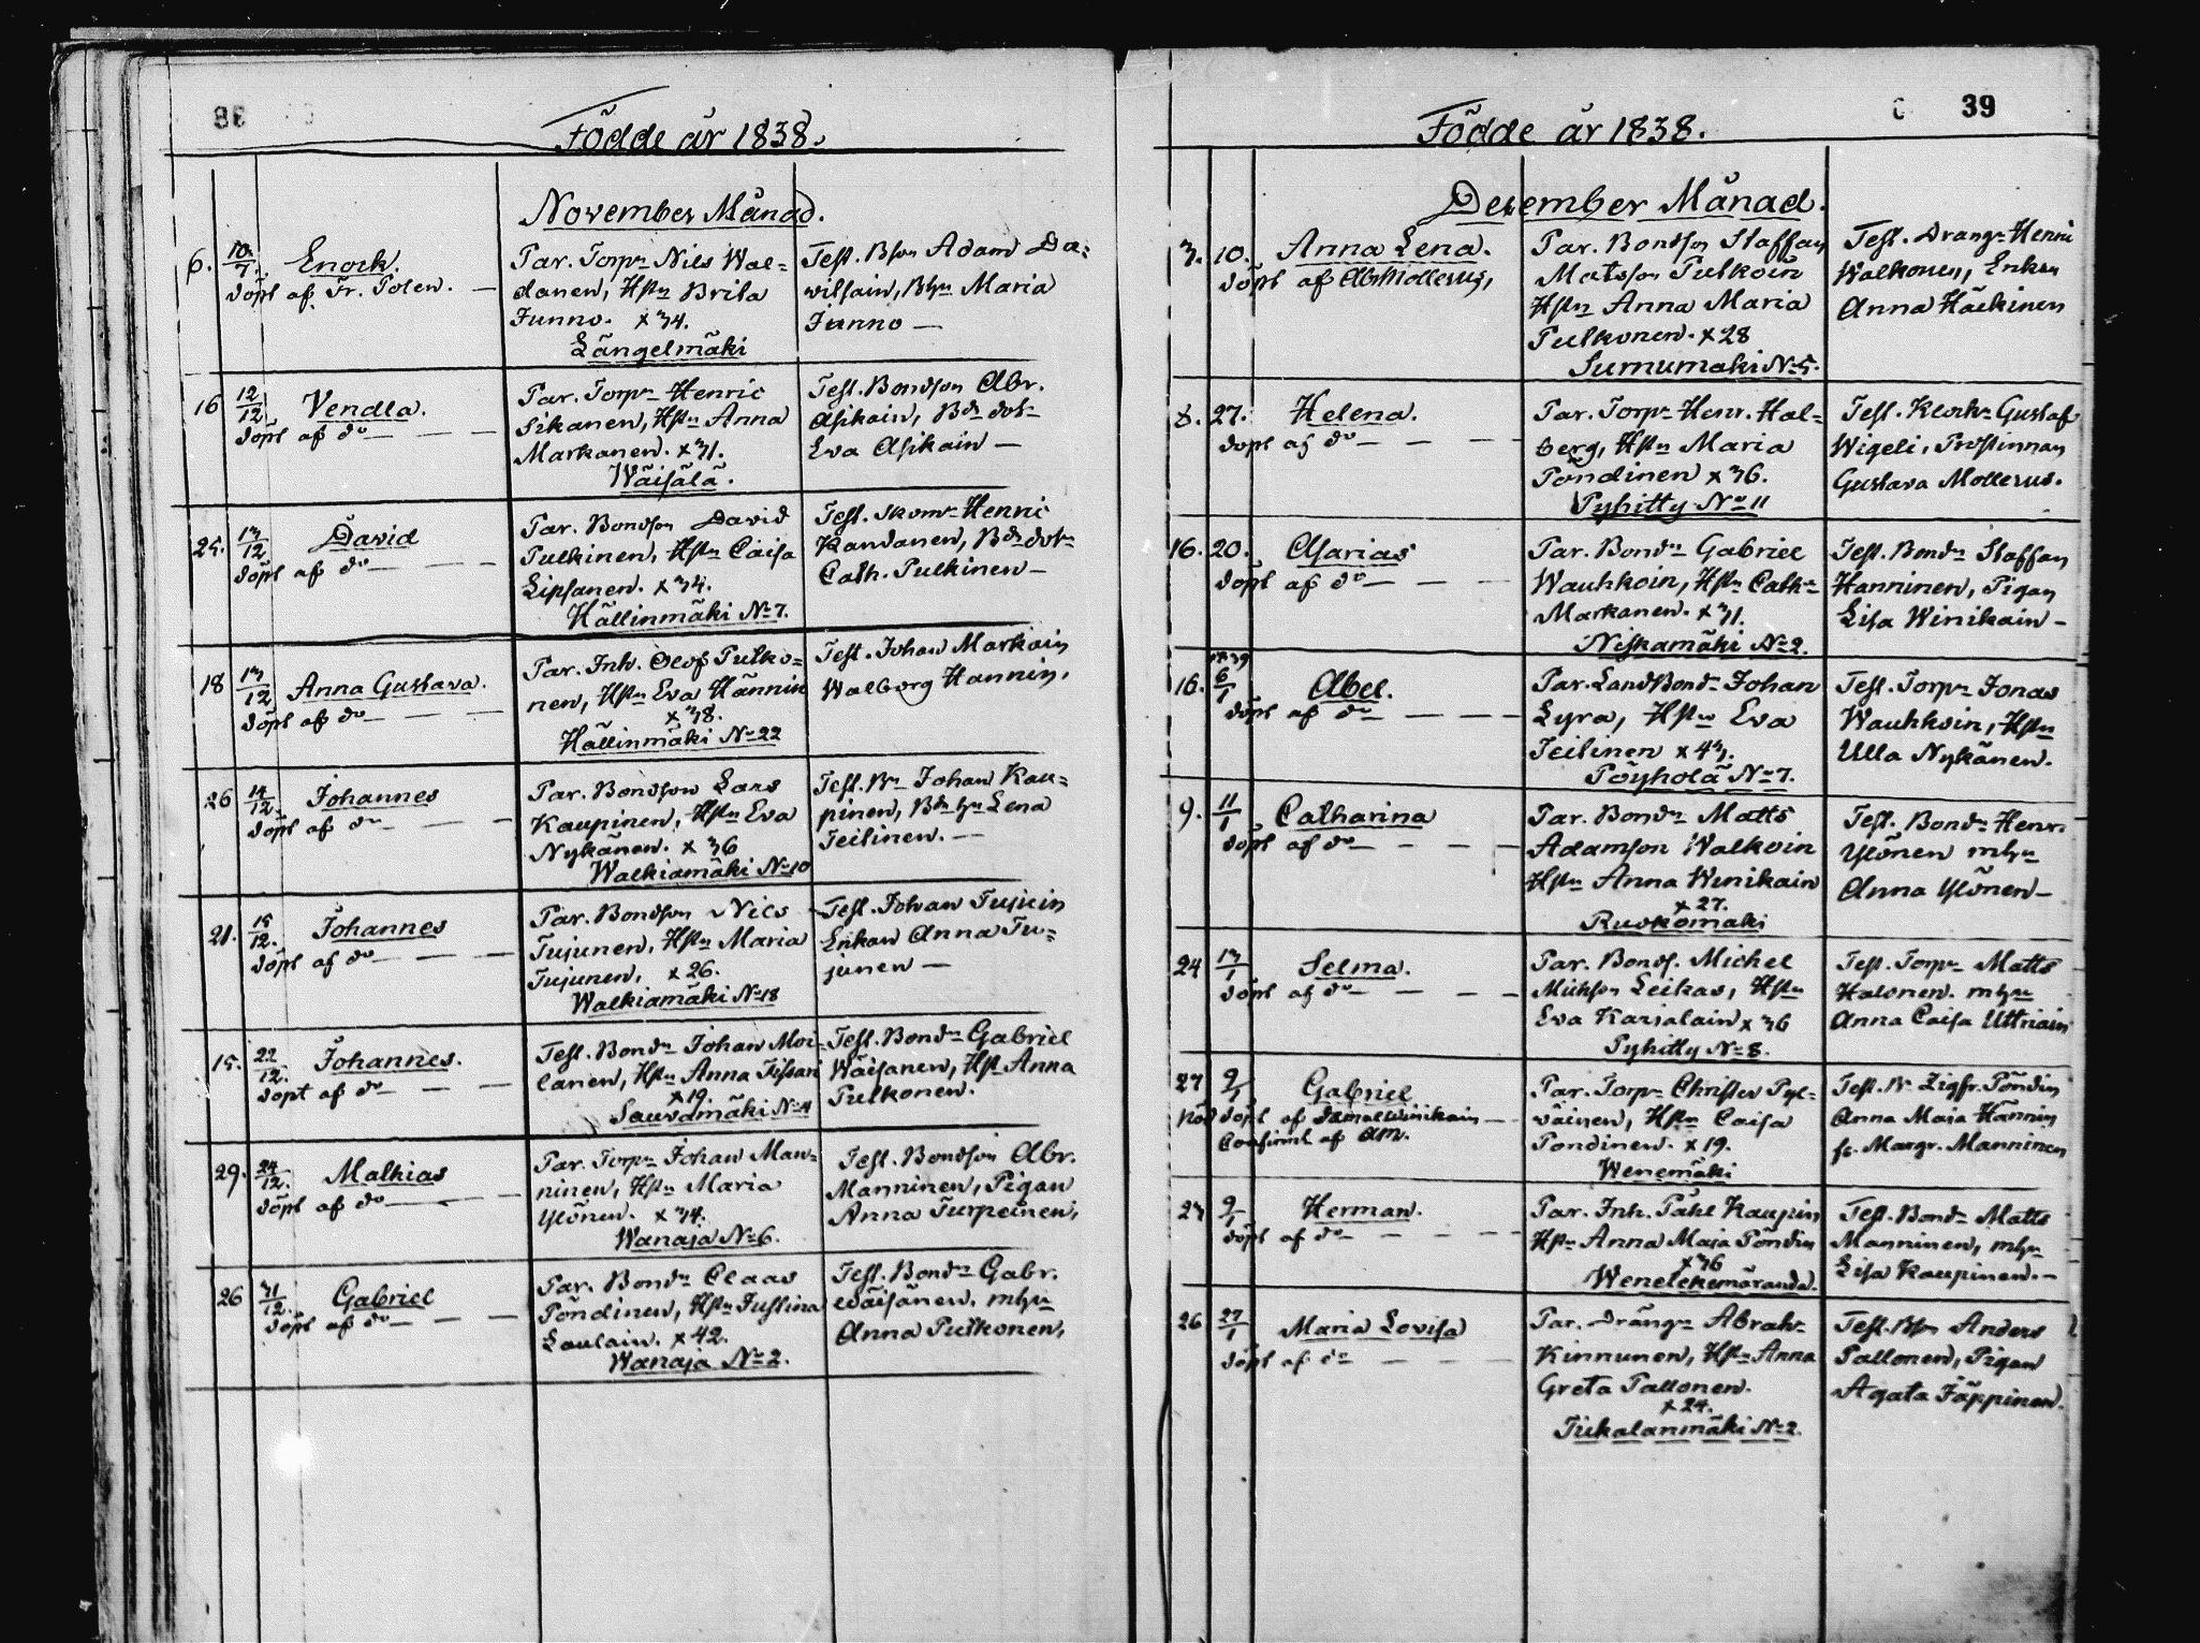 Födde år 1838.
November Månad.
6. 10/7. Enock.
döpt af Fr. Polen. —
Par. Torpn Nils Wal=
danen, Hstn Brita
Junno. x 34.
Längelmäki
Test. Bson Adam Da=
vilsain, Bhn Maria
Junno —
16 12/12 Vendla.
döpt af do — — —
Par. Torpn Henric
Sikanen, Hstn Anna
Markanen. x 31.
Wäisälä.
Test. Bondson Abr.
Asikain, Bds dotr
Eva Asikain —
25. 13/12 David
döpt af do — — —
Par. Bondson David
Pulkinen, Hstn Caisa
Lipsanen. x 34.
Hällinmäki No 7.
Test. Skomr Henric
Kandanen, Bds dotr
Cath. Pulkinen —
18 13/12 Anna Gustava.
döpt af do — — —
Par. Inh. Olof Pulko=
nen, Hstn Eva Hännin
nen, x 38.
Hällinmäki No 22
Test. Johan Markain
Walborg Hannin,
26 14/12. Johannes
döpt af do — — —
Par. Bondson Lars
Kaupinen, Hstn Eva
Nykänen. x 36
Walkiamäki No 10
Test. Bn Johan Kau=
pinen, Bds hu Lena
Teilinen. —
21. 15/12. Johannes
döpt af do — — —
Par. Bondson Nils
Tujunen, Hstn Maria
Tujunen, x 26.
Walkiamäki No 18
Test. Johan Tujuin
Enkan Anna Tu=
junen —
15. 22/12. Johannes.
dopt af do — — —
Test. Bondn Johan Moi
lanen, Hstn Anna Tissari
x 19.
Sauvamäki No 4
Test. Bondn Gabriel
Wäisanen, Hst Anna
Pulkonen.
29. 24/12. Mathias
döpt af do — —
Par. Torpn Johan Man=
ninen, Hstn Maria
Ylönen. x 34.
Wanaja No 6.
Test. Bondson Abr.
Manninen, Pigan
Anna Turpeinen,
26 31/12. Gabriel
döpt af do — — —
Par. Bondn Claas
Pöndinen, Hstn Justina
Laulain. x 42.
Wanaja No 2.
Test. Bondn Gabr.
Wäisänen. mhu
Anna Pulkonen,
39
Födde år 1838.
December Månad.
3. 10. Anna Lena.
döpt af Abr Mollerus,
Par. Bondson Staffan
Matsson Pulkoin
Hstn Anna Maria
Pulkonen. x 28
Surnumäki No 5.
Test. Drangn Henric
Walkonen, Enkan
Anna Häkinen
8. 27. Helena.
döpt af do — — —
Par. Torpn Henr. Hal=
berg, Hstn Maria
Pöndinen x 36.
Pyhitty No 11
Test. Klockn Gustaf
Wigeli, Prostinnan
Gustava Mollerus.
16. 20. Asarias
döpt af do — — —
Par. Bondn Gabriel
Wauhkoin, Hstn Cathn
Markanen. x 31.
Niskamäki No 2.
Test. Bondn Staffan
Hanninen, Pigan
Lisa Winikain —
16. 1839 6/1 Abel.
döpt af do — — —
Par. LandBondn Johan
Lyra, Hstn Eva
Teilinen x 43.
Pöyholä No 7.
Test. Torpn Jonas
Wauhkoin, Hstn
Ulla Nykänen.
9. 11/1 Catharina
döpt af do — — —
Par. Bondn Matts
Adamson Walkoin
Hstn Anna Winikain
x 27.
Ruokomäki
Test. Bondn Henr.
Ylönen mhu
Anna Ylönen —
24 13/1 Selma.
döpt af do — — —
Par. Bonds. Michel
Michson Leikas, Hstn
Eva Karjalain x 36
Pyhitty No 8.
Test. Torpn Matts
Halonen. mhu
Anna Caisa Uttriain
27 9/1 Gabriel
Nöd döpt af Samuel Winikain —
Confirmt af AM.
Par. Torpn Christer Pyl=
väinen, Hstn Caisa
Pondinen. x 19.
Wenemäki
Test. Bn Zigfr. Pöndin
Anna Maia Hännin
fr. Margr. Manninen
23 9/1 Herman.
döpt af do — — —
Par. Inh. Påhl Kaupin
Hstn Anna Maja Pöndin
x 36
Test. Bondn Matts
Manninen, mhu
Lisa Kaupinen. —
26 27/1 Maria Lovisa
döpt af do — — —
Par. Drängn Abrah.
Kinnunen, Hstn Anna
Greta Pallonen.
x 24.
Tiukalanmäki No 2.
Test. Bson Anders
Pallonen, Pigan
Agata Jäppinen.